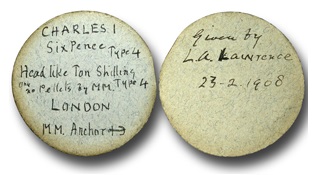 CHARLES I
Sixpence Type 4
Head like Ton Shilling
no pellets by M.M. Type 4
LONDON
M.M. Anchor
Given by
L.A. Lawrence
23-2-1908